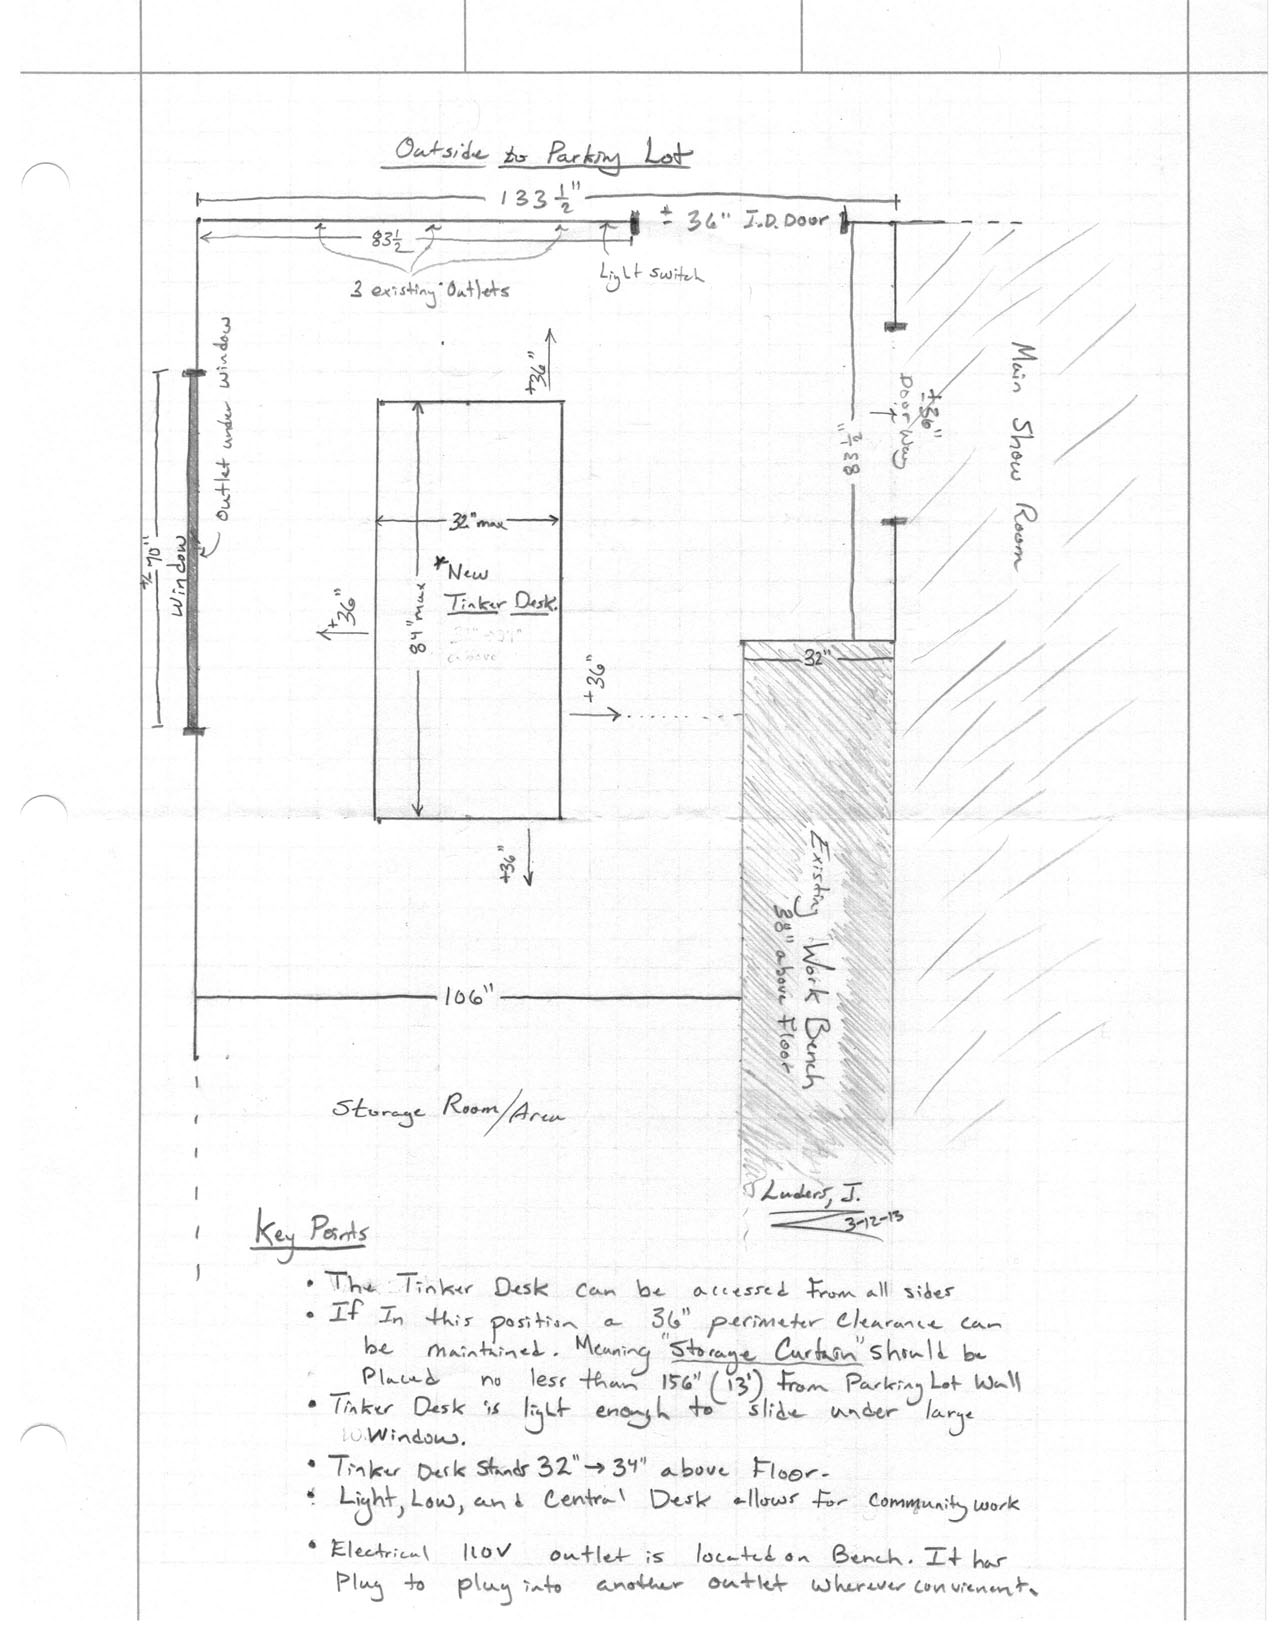 Outside to Parking Lot
133 1/2"
± 36" I.D. Door
83 1/2
3 existing Outlets
Light switch
Outlet under window
+36"
± 36"
Door Way
Main Show Room
83 1/2"
+/- 70"
Window
32" max
*New
Tinker Desk.
84" max
+36"
+36"
32"
+36"
Existing Work Bench
38" above Floor
106"
Storage Room/Area
Luders, J.
3-12-13
Key Points
• The Tinker Desk can be accessed From all sides
• If In this position a 36" perimeter Clearance can
be maintained. Meaning "Storage Curtain" should be
Placed no less than 156" (13') From Parking Lot Wall
• Tinker Desk is light enough to slide under large
Window.
• Tinker Desk Stands 32" → 34" above Floor.
• Light, Low, and Central Desk allows for community work
• Electrical 110V outlet is located on Bench. It has
Plug to plug into another outlet wherever convienent.